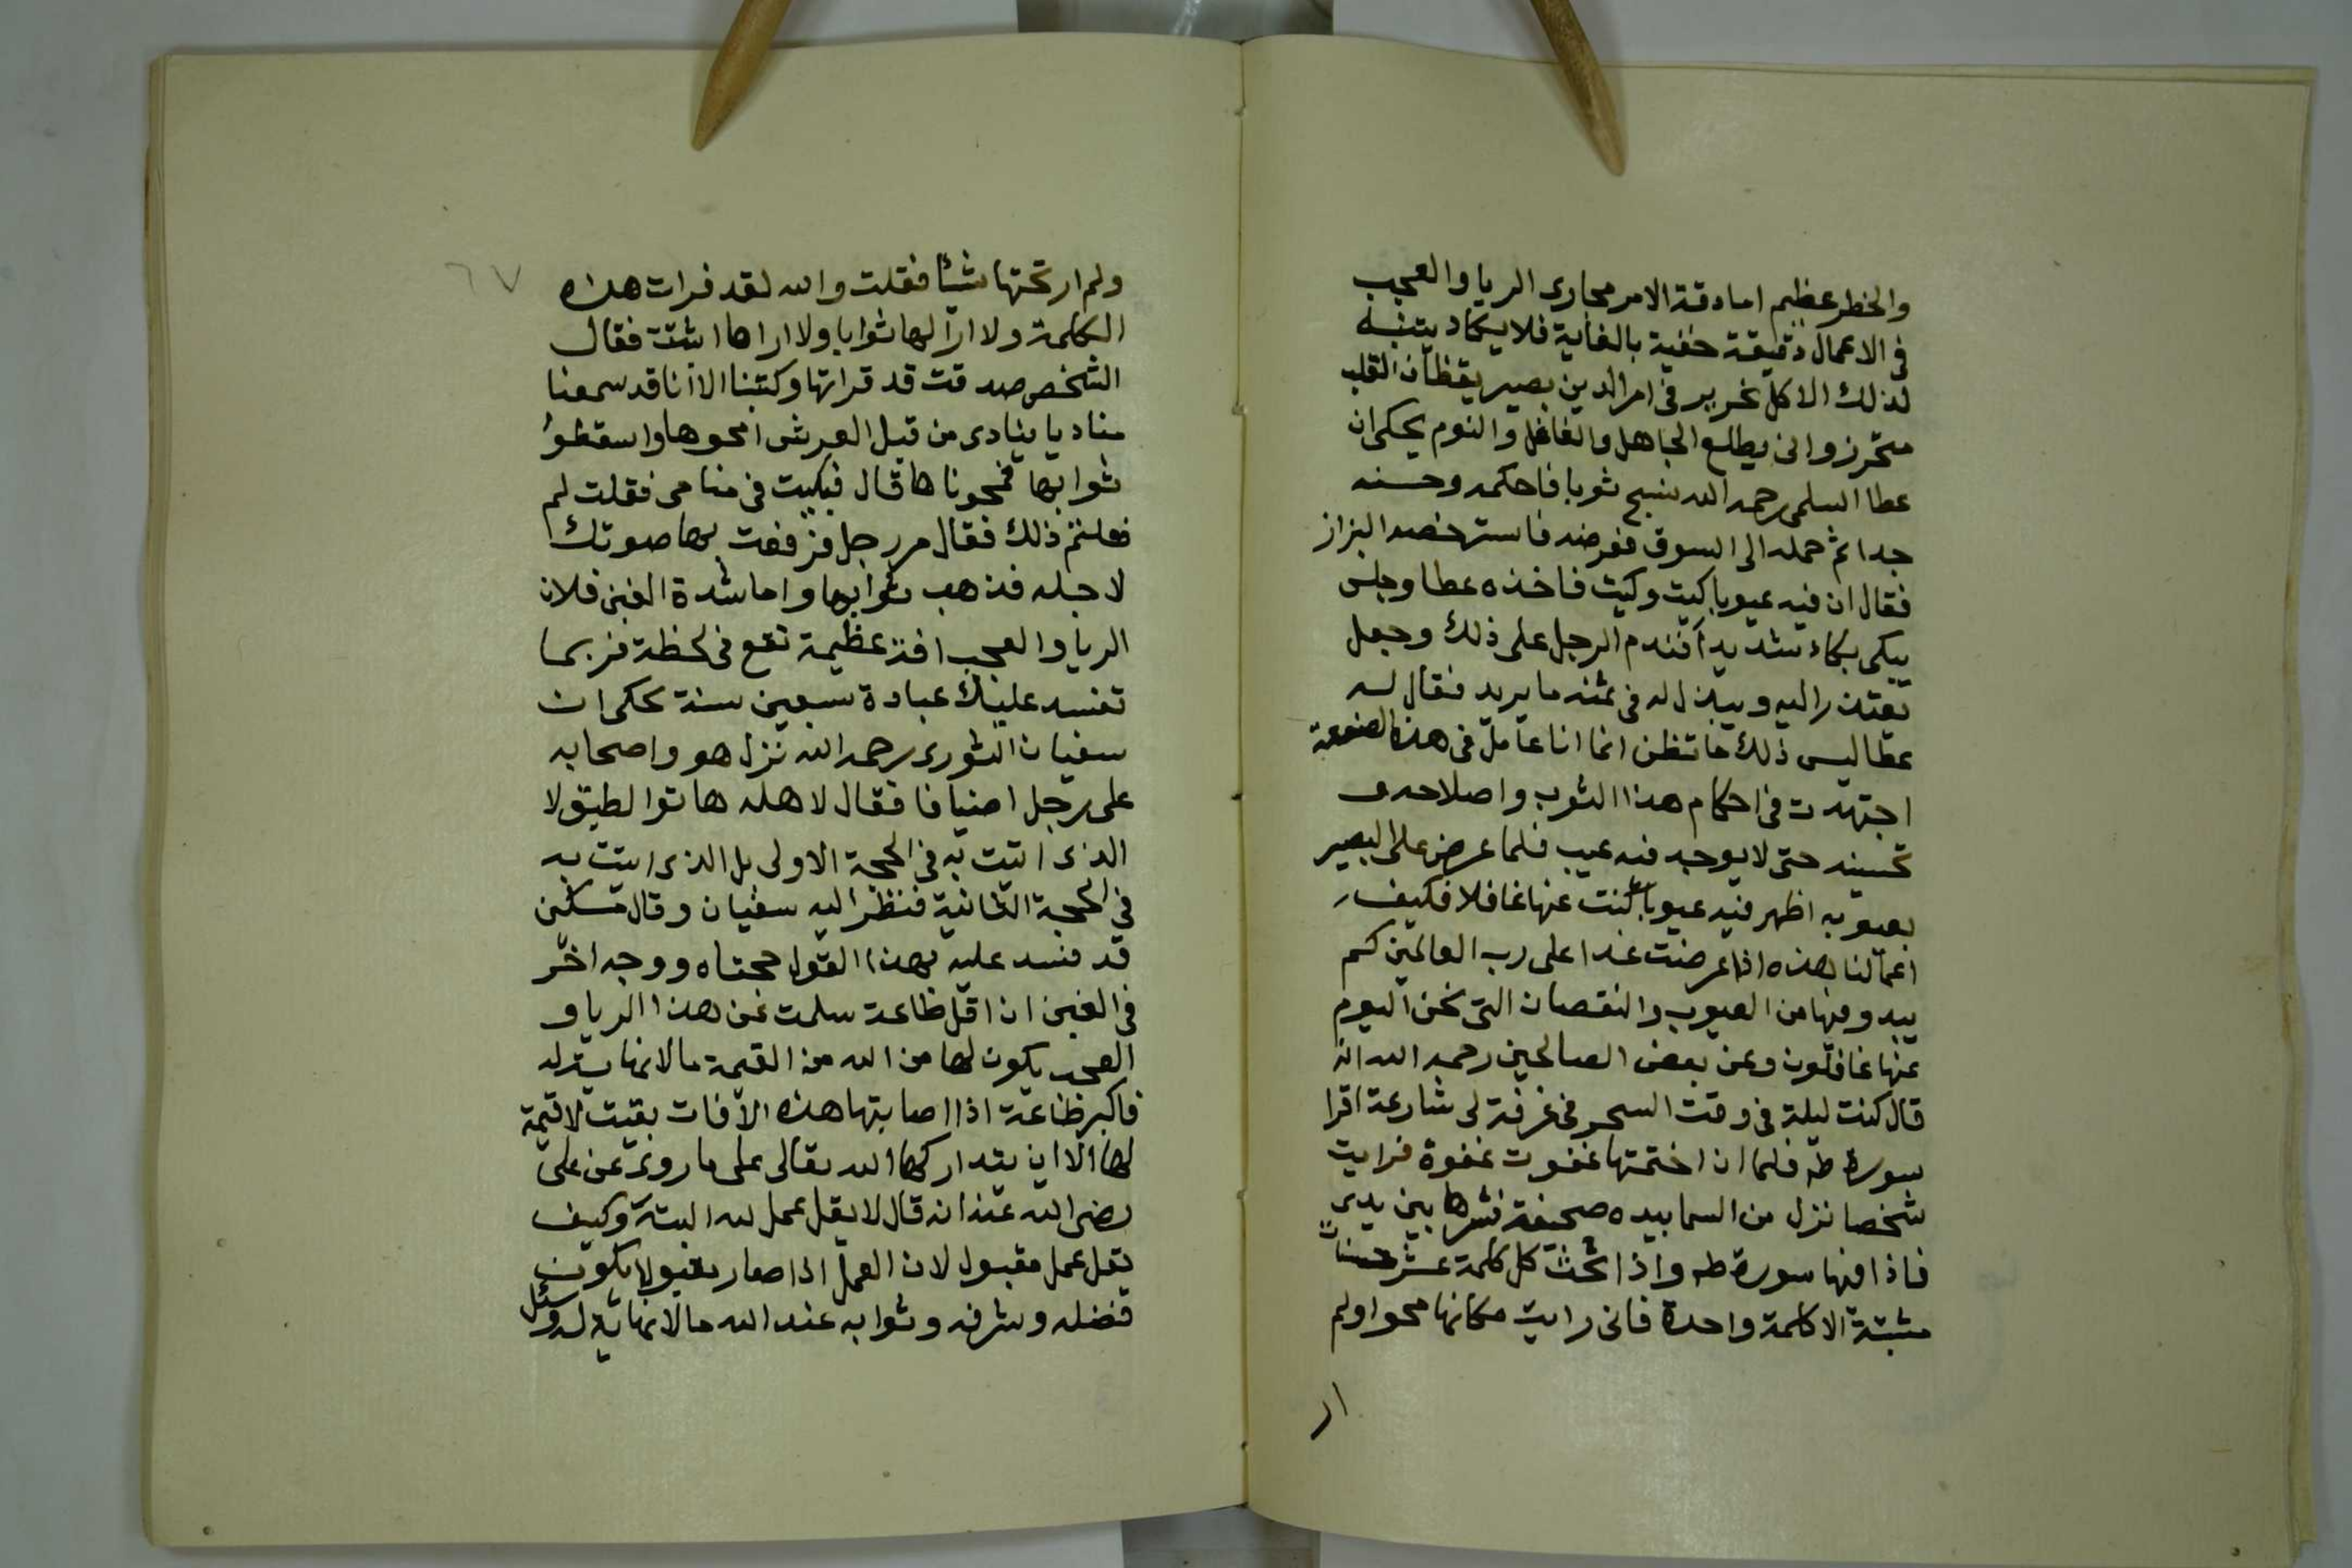 والخطر عظيم اما دقة الامر مجارى الريا والعجب
فى الاعمال دقيقة خفية بالغاية فلا يكاد يتنبه
لذلك الا كل نحرير فى امر الدين بصير يقظان القلب
متحرز وانى يطلع الجاهل والغافل والنوم يحكى ان
عطا السلمى رحمه الله ينسج ثوبا فاحكمه وحسنه
جدا ثم حمله الى السوق فعرضه فاسترخصه البزاز
فقال ان فيه عيوبا كيت وكيت فاخذه عطا وجلس
يبكى بكاء شديدا فندم الرجل على ذلك وجعل
يعتذر اليه ويبذل له فى ثمنه ما يريد فقال له
عطا ليس ذلك ما تظن انما انا عامل فى هذه الصنعة
اجتهدت فى احكام هذا الثوب واصلاحه و
تحسينه حتى لا يوجد فيه عيب فلما عرض على البصير
بعيوبه اظهر فيه عيوبا كنت عنها غافلا فكيف
اعمالنا هذه اذا عرضت غدا على رب العالمين كم
يبدو فيها من العيوب والنقصان التى نحن اليوم
عنها غافلون وعن بعض الصالحين رحمه الله انه
قال كنت ليلة فى وقت السحر فى غرفة لى شارعة اقرا
سورة طه فلما ان اختمتها غفوت غفوة فرايت
شخصا نزل من السما بيده صحيفة نشرها بين يدى
فاذا فيها سورة طه واذا تحت كل كلمة عشر حسنات
مثبتة الا كلمة واحدة فانى رايت مكانها محوا ولم
ار
٦٧
ولم ار تحتها شيئا فقلت والله لقد قرات هذه
الكلمة ولا ارا لها ثوابا ولا اراها اثبتت فقال
الشخص صدقت قد قراتها وكتبنا الا انا قد سمعنا
مناديا ينادى من قبل العرش امحوها واسقطوا
ثوابها فمحوناها قال فبكيت فى منامى فقلت لم
فعلتم ذلك فقال مر رجل فرفعت بها صوتك
لاجله فذهب ثوابها واما شدة الغبن فلان
الريا والعجب افة عظيمة تقع فى لحظة فربما
تفسد عليك عبادة سبعين سنة حكى ان
سفيان الثورى رحمه الله نزل هو واصحابه
على رجل اضيافا فقال لاهله هاتوا الطبق لا
الذى اتيت به فى الحجة الاولى بل الذى اتيت به
فى الحجة الثانية فنظر اليه سفيان وقال مسكين
قد فسد عليه بهذا القول حجتاه ووجه اخر
فى الغبن ان اقل طاعة سلمت عن هذا الريا و
العجب يكون لها من الله من القيمة ما لا نهاية له
فاكبر طاعة اذا اصابتها هذه الافات بقيت لا قيمة
لها الا ان يتداركها الله تعالى على ما روى عن على
رضى الله عنه انه قال لا يقل عمل لله البتة وكيف
يقل عمل مقبول لان العمل اذا صار مقبولا يكون
فضله وشرفه وثوابه عند الله ما لا نهاية له وسئل